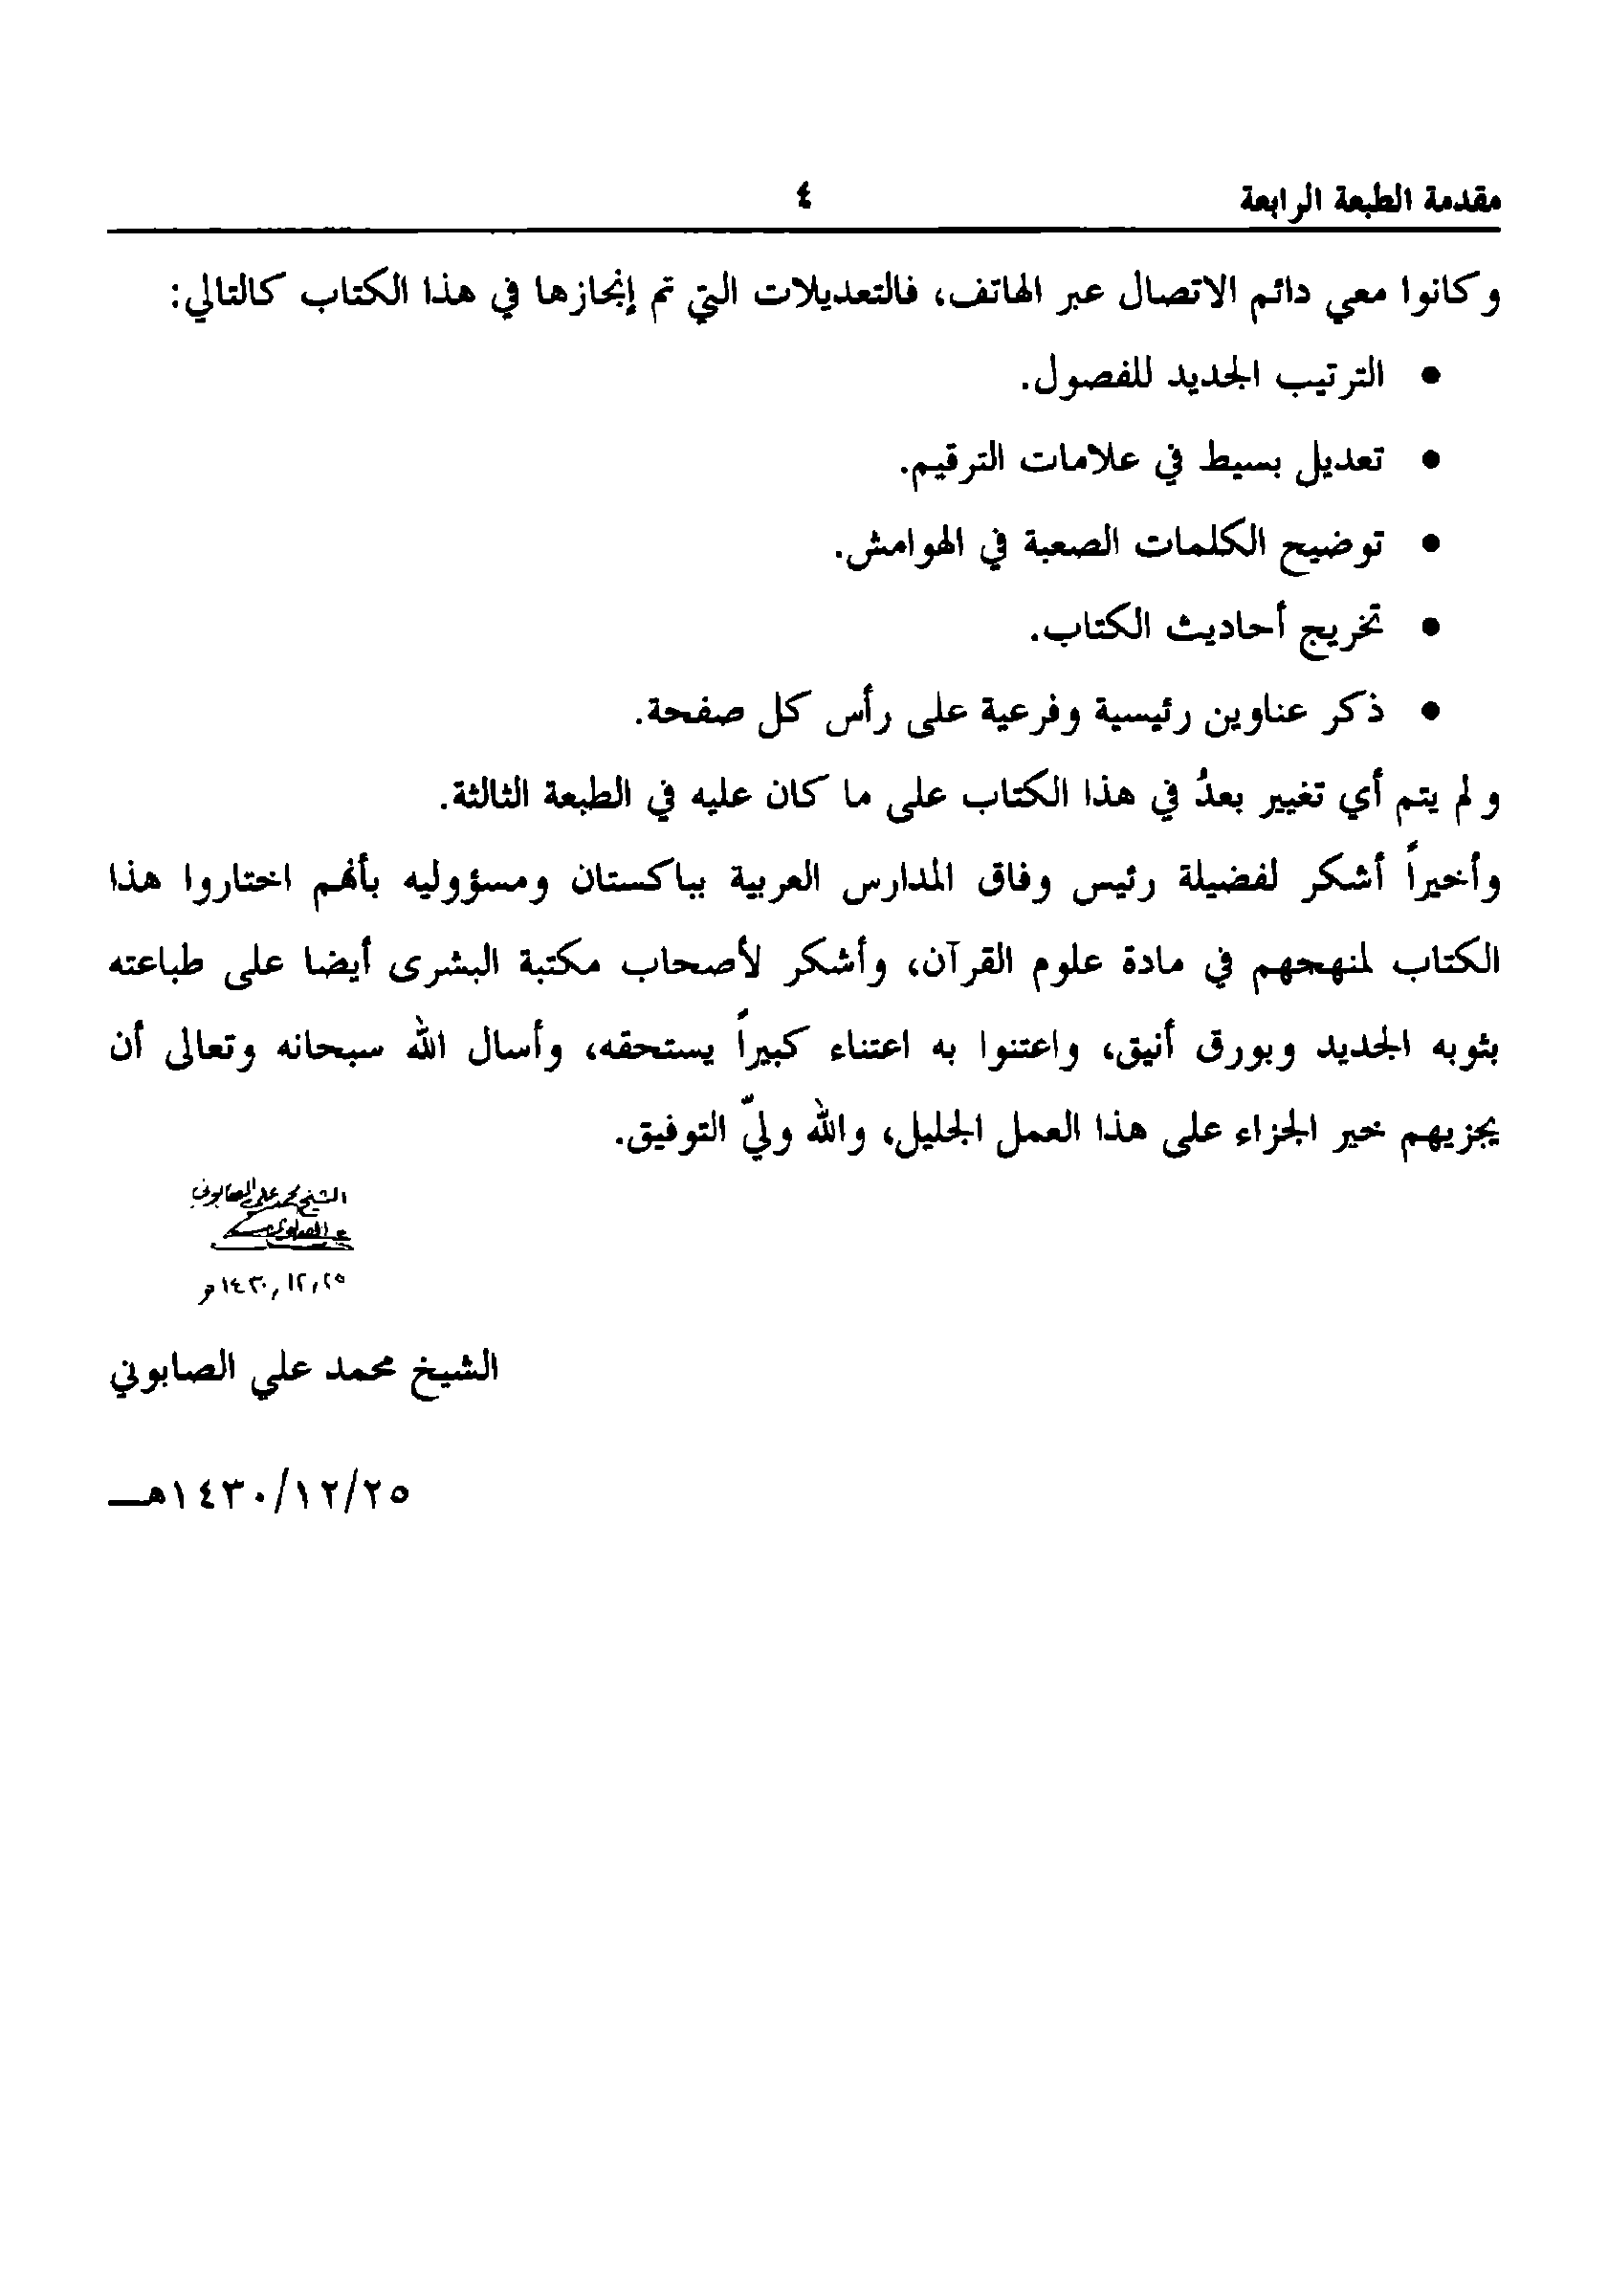 مقدمة الطبعة الرابعة ٤
وكانوا معي دائم الاتصال عبر الهاتف، فالتعديلات التي تم إنجازها في هذا الكتاب كالتالي:
• الترتيب الجديد للفصول.
• تعديل بسيط في علامات الترقيم.
• توضيح الكلمات الصعبة في الهوامش.
• تخريج أحاديث الكتاب.
• ذكر عناوين رئيسية وفرعية على رأس كل صفحة.
ولم يتم أي تغيير بعدُ في هذا الكتاب على ما كان عليه في الطبعة الثالثة.
وأخيراً أشكر لفضيلة رئيس وفاق المدارس العربية بباكستان ومسؤوليه بأنهم اختاروا هذا
الكتاب لمنهجهم في مادة علوم القرآن، وأشكر لأصحاب مكتبة البشرى أيضا على طباعته
بثوبه الجديد وبورق أنيق، واعتنوا به اعتناء كبيراً يستحقه، وأسال الله سبحانه وتعالى أن
يجزيهم خير الجزاء على هذا العمل الجليل، والله وليّ التوفيق.
الشيخ محمد علي الصابوني
الصابوني
٢٥,١٢,١٤٣٠
الشيخ محمد علي الصابوني
١٤٣٠/١٢/٢٥هـــ